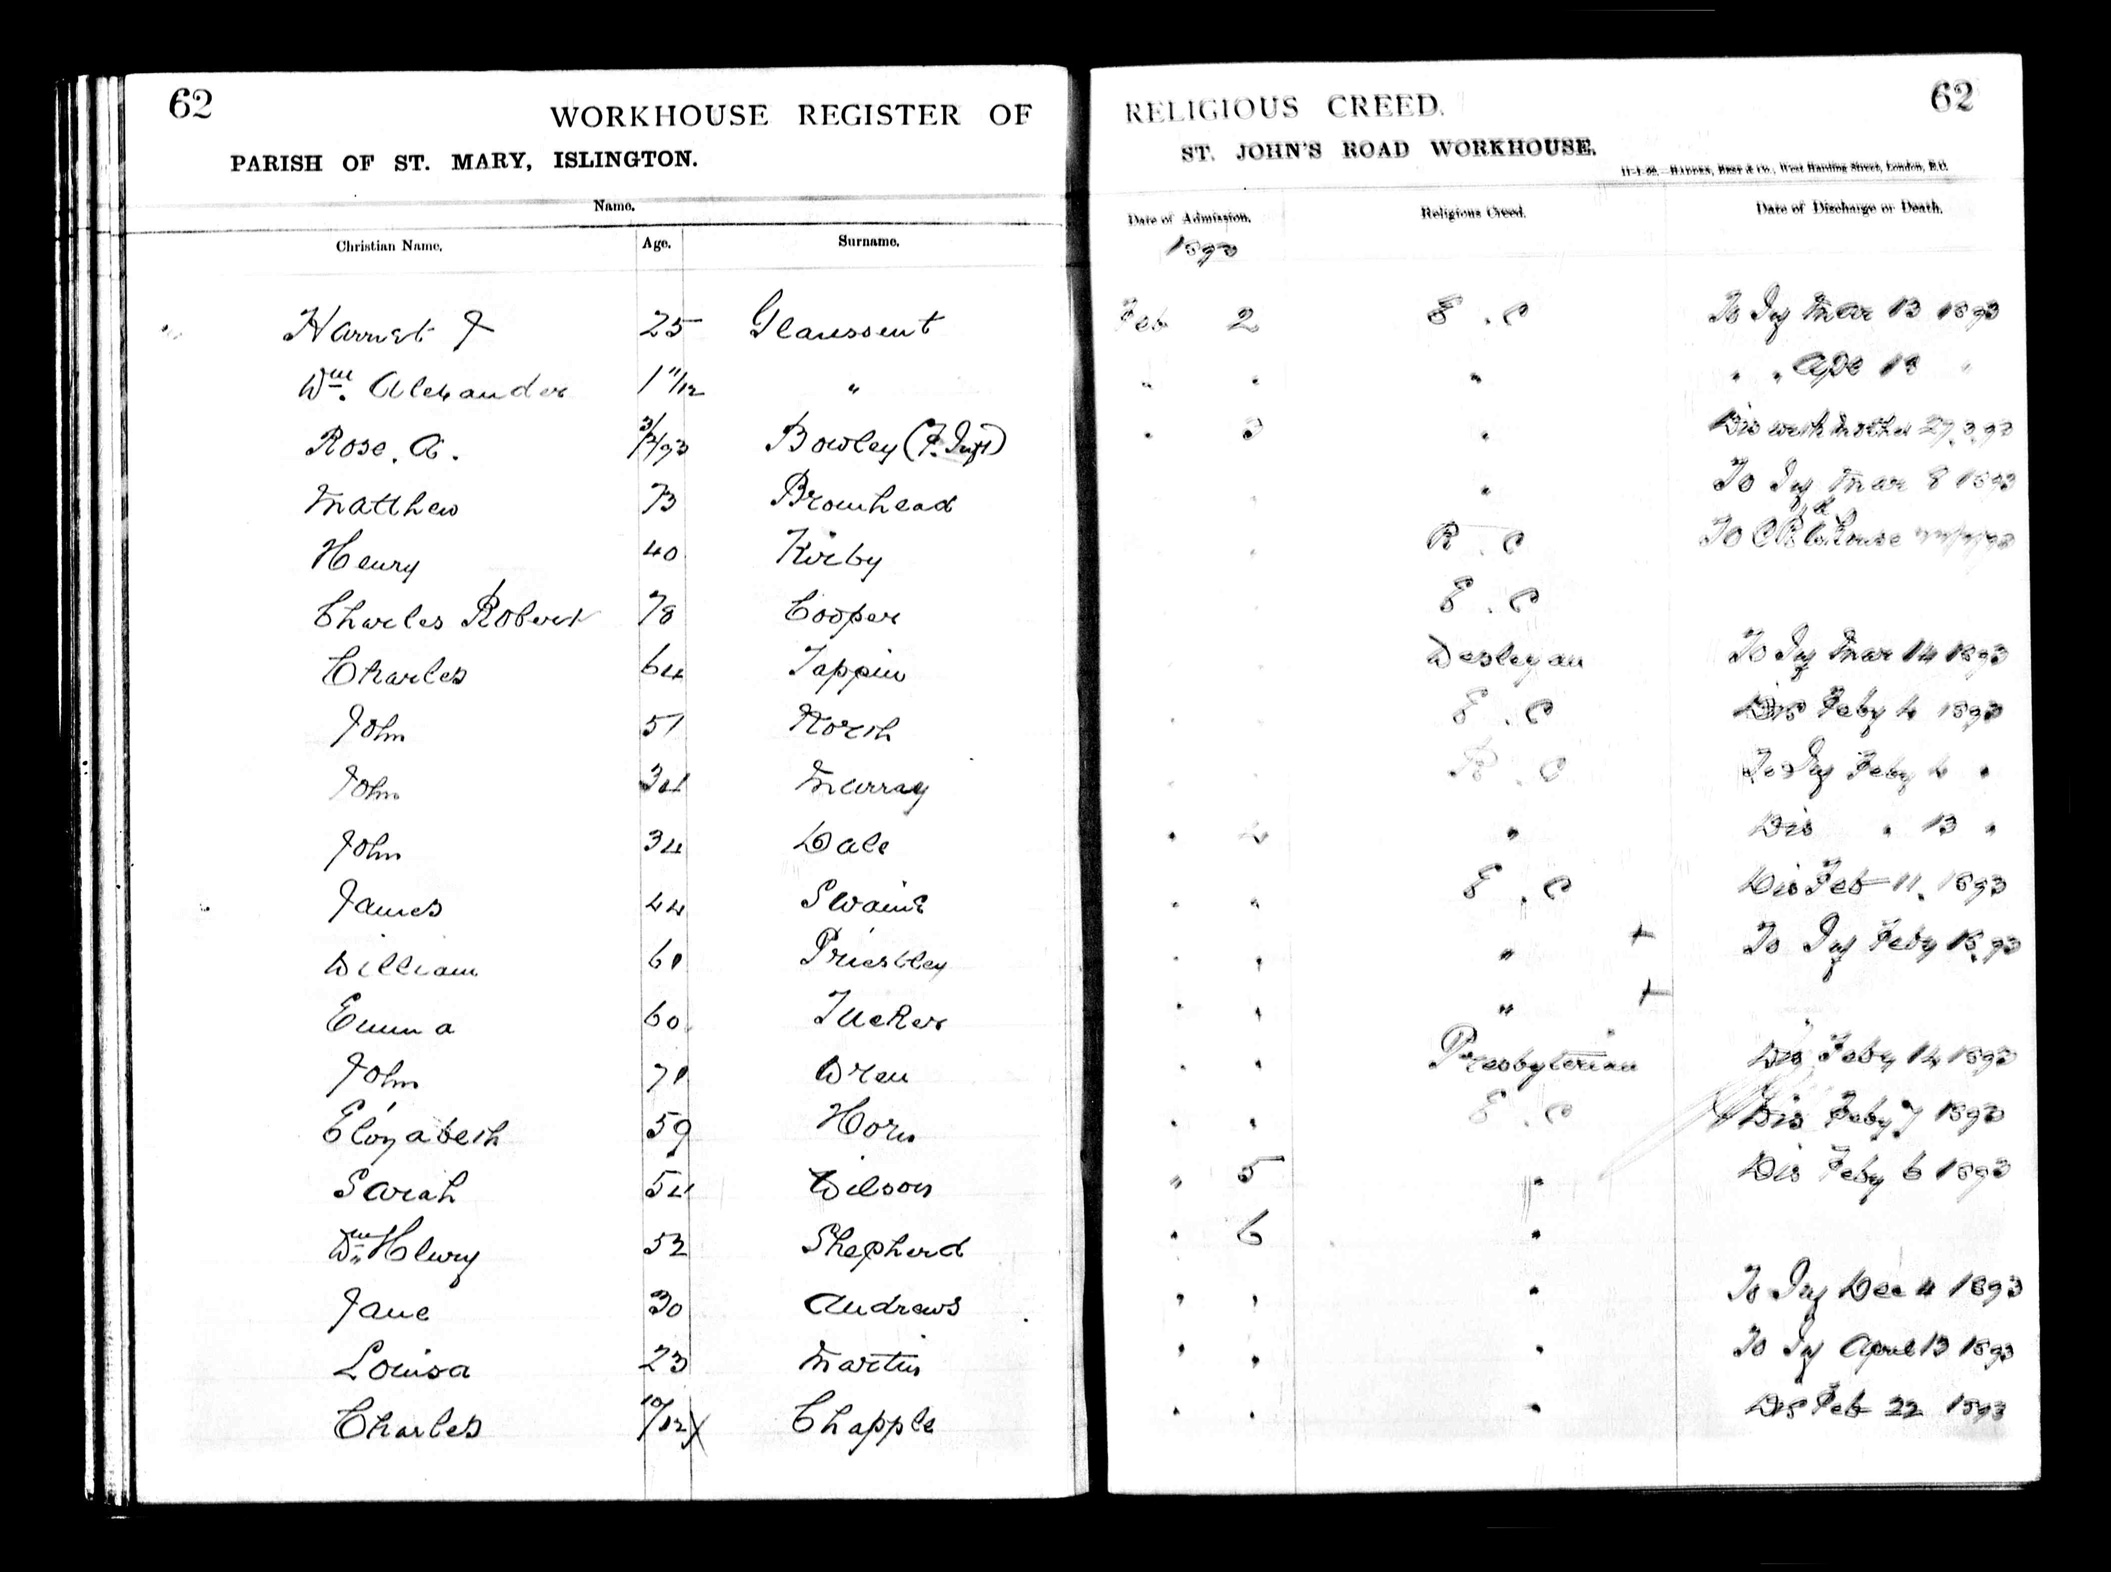 62 WORKHOUSE REGISTER OF RELIGIOUS CREED. 62
PARISH OF ST. MARY, ISLINGTON. ST. JOHN'S ROAD WORKHOUSE.
West Harding Street, London, E.C.
Name. Date of Admission. Religious Creed. Date of Discharge or Death.
Christian Name. Age. Surname. 1893
Harriet J 25 Feb 2 E . C To Iny Mar 13 1893
Wm. Alexander 1 11/12 " " " " " " Apl 13 "
Rose. A. 3/2/93 Bowley (F. Inft) " 3 " Dis with Mother 27.3.93
Matthew 73 Bromhead " " To Iny Mar 8 1893
Henry 40 Kirby " R . C To
Charles Robert 78 Cooper E . C
Charles 64 Tappin Wesleyan To Iny Mar 14 1893
John 51 North " E . C Dis Feby 4 1893
John 34 Murray R . C To Iny Feby 4 "
John 34 Dale " 4 " Dis " 13 "
James 44 Swaine " " E . C Dis Feb 11. 1893
William 61 Priestley " " " + To Iny Feby 93
Emma 60 Tucker " " " +
John 71 Wren " " Presbyterian Dis Feby 14 1893
Elizabeth 59 Horn " " E . C Dis Feby 7 1893
Sarah 54 Wilson " 5 " Dis Feby 6 1893
Wm Henry 52 Shepherd " 6 "
Jane 30 Andrews " " " To Iny Dec 4 1893
Louisa 23 Martin " " " To Iny April 13 1893
Charles 10/12 X Chapple " " " Dis Feb 22 1893